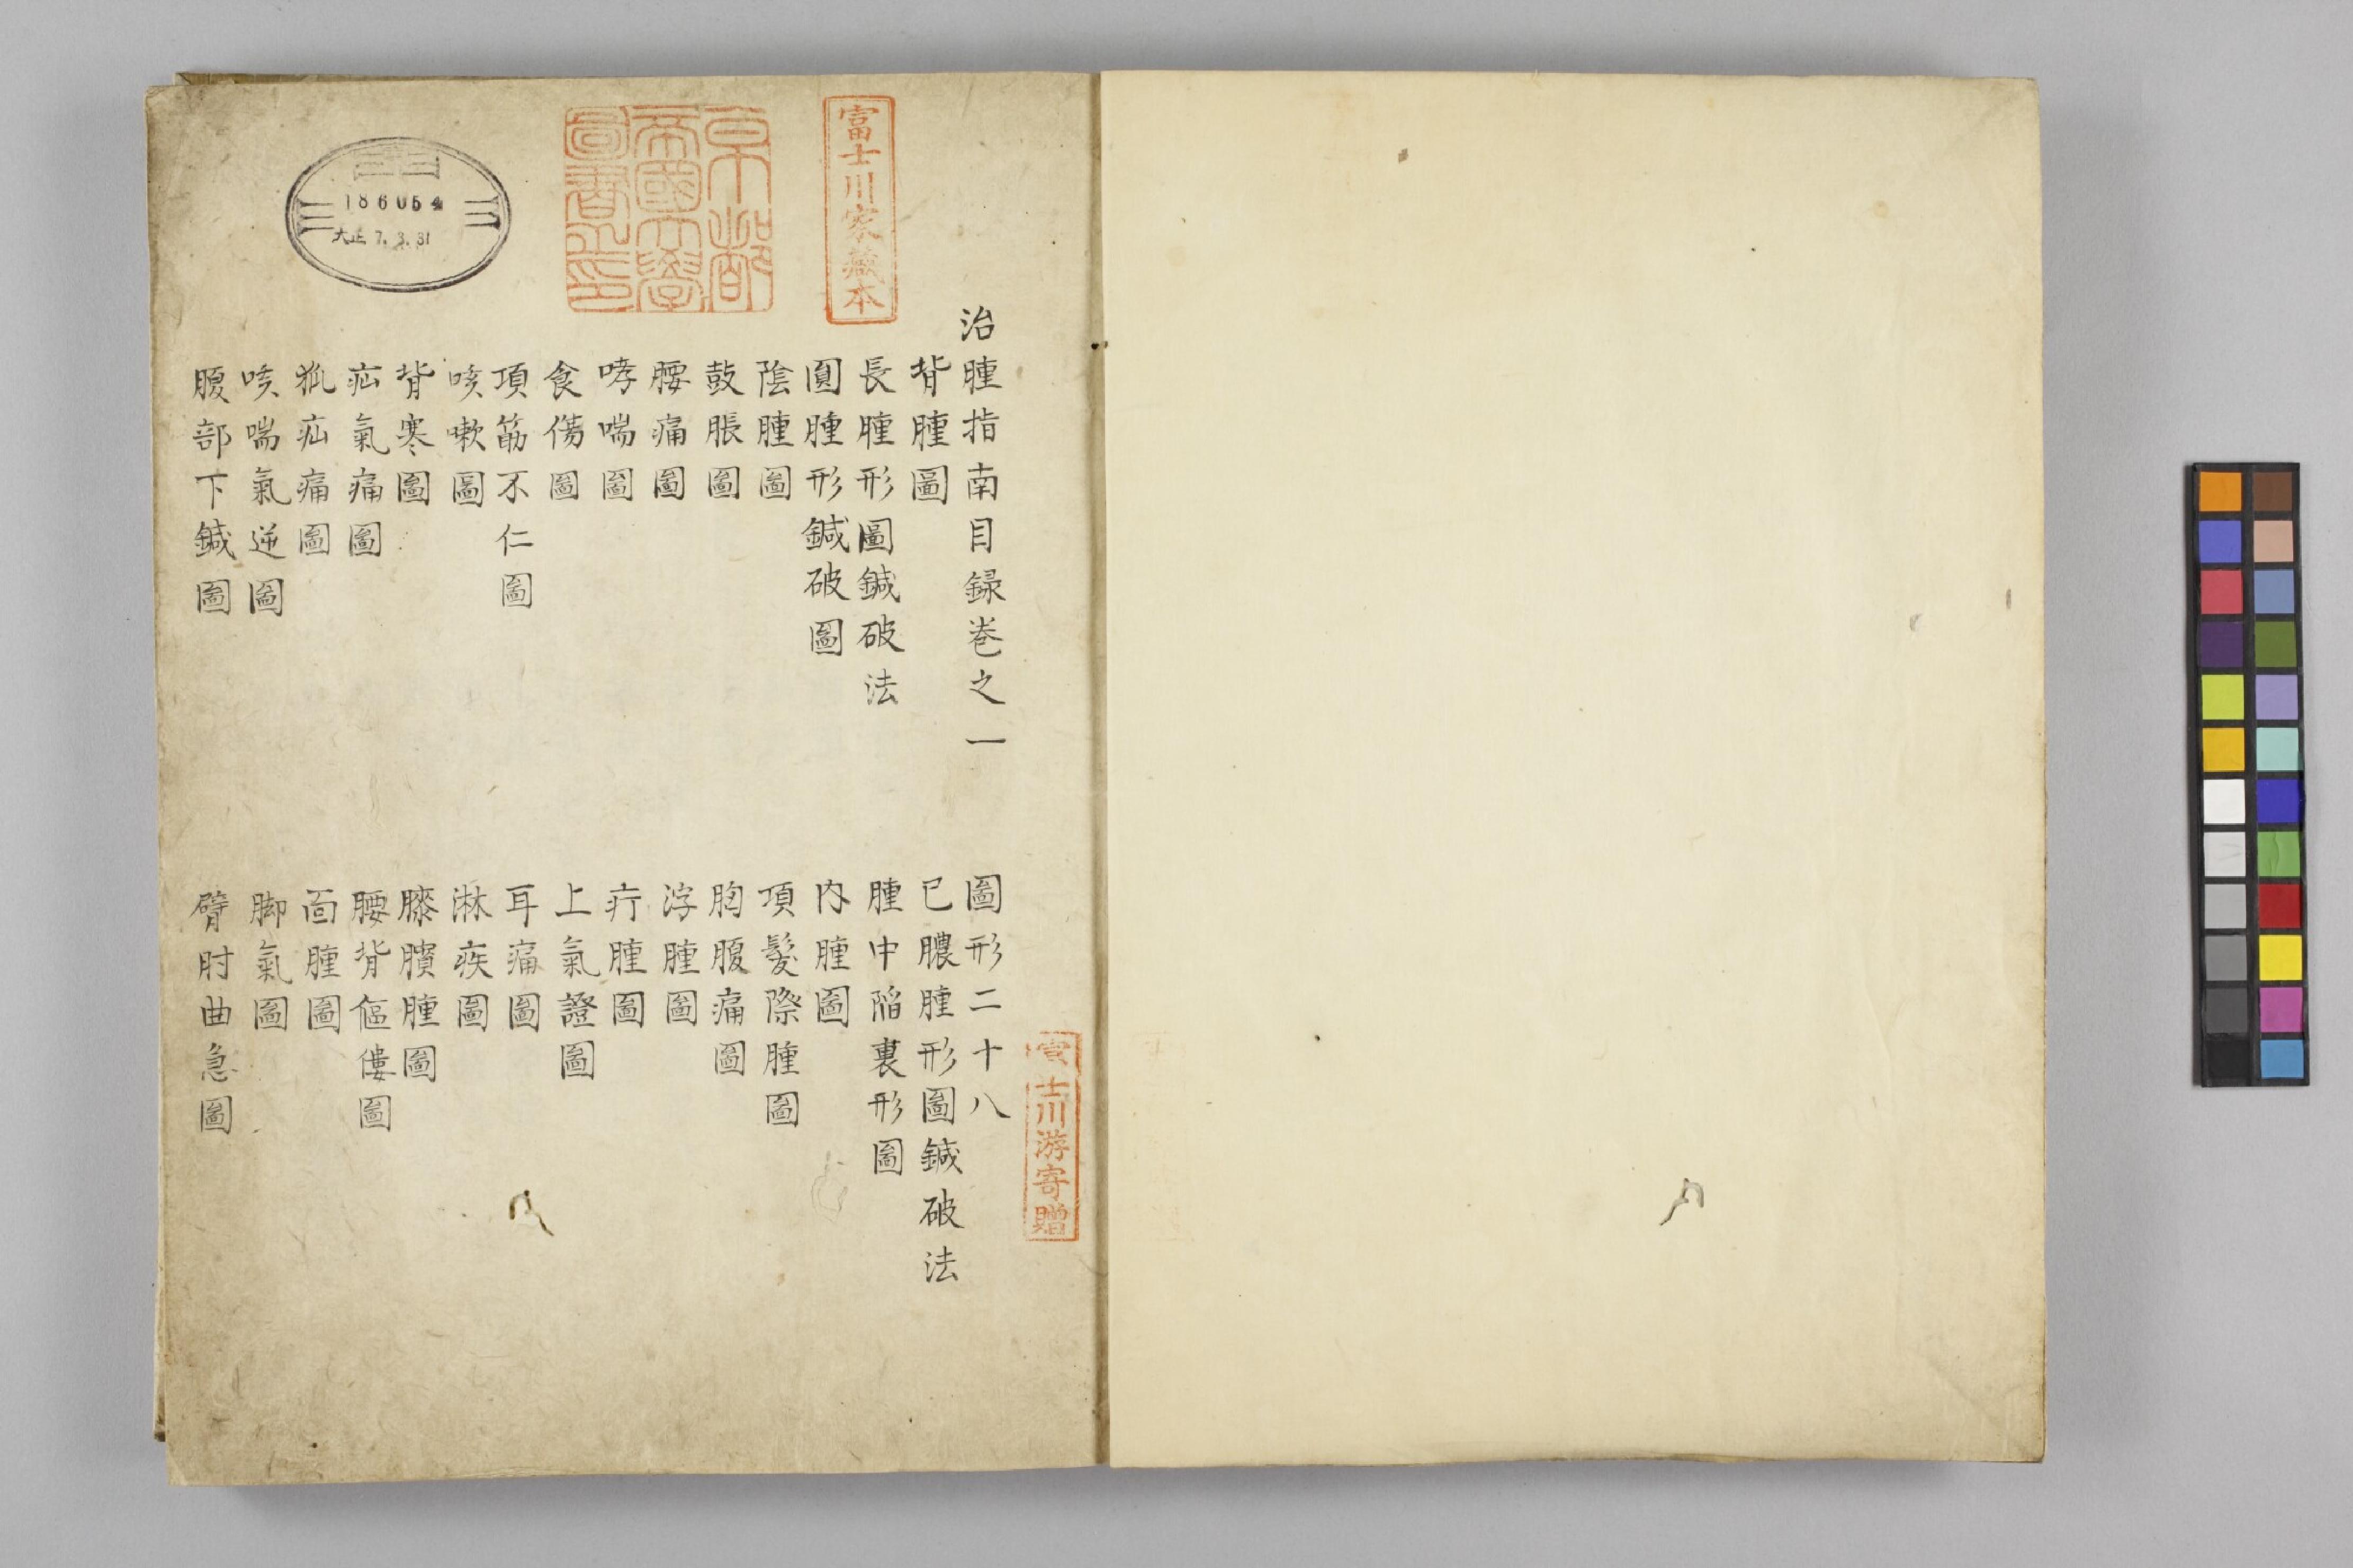 治腫指南目録巻之一 圖形二十八
背腫圖 已膿腫形圖鍼破法
長腫形圖鍼破法 腫中陷裏形圖
圓腫形鍼破圖 內腫圖
陰腫圖 項髮際腫圖
鼓脹圖 胸腹痛圖
腰痛圖 浮腫圖
哮喘圖 疔腫圖
食傷圖 上氣證圖
項筋不仁圖 耳痛圖
咳嗽圖 淋疾圖
背寒圖 膝臏腫圖
疝氣痛圖 腰背傴僂圖
狐疝痛圖 面腫圖
咳喘氣逆圖 脚氣圖
腹部下鍼圖 臂肘曲急圖
富士川家藏本
京都帝國大學圖書之印
186054
大正 7. 3. 31
富士川游寄贈